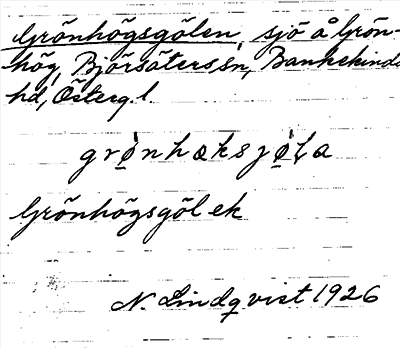 Grönhögsgölen, sjö å Grön-
hög, Björsäters sn, Bankekinds
hd, Österg. l.
grö̀nhøksjö̀ɭa
Grönhögsgöl ek
N. Lindqvist 1926